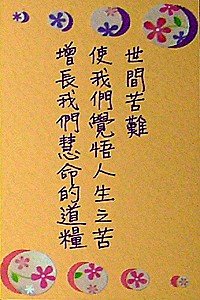 世間苦難
使我們覺悟人生之苦
增長我們慧命的道糧